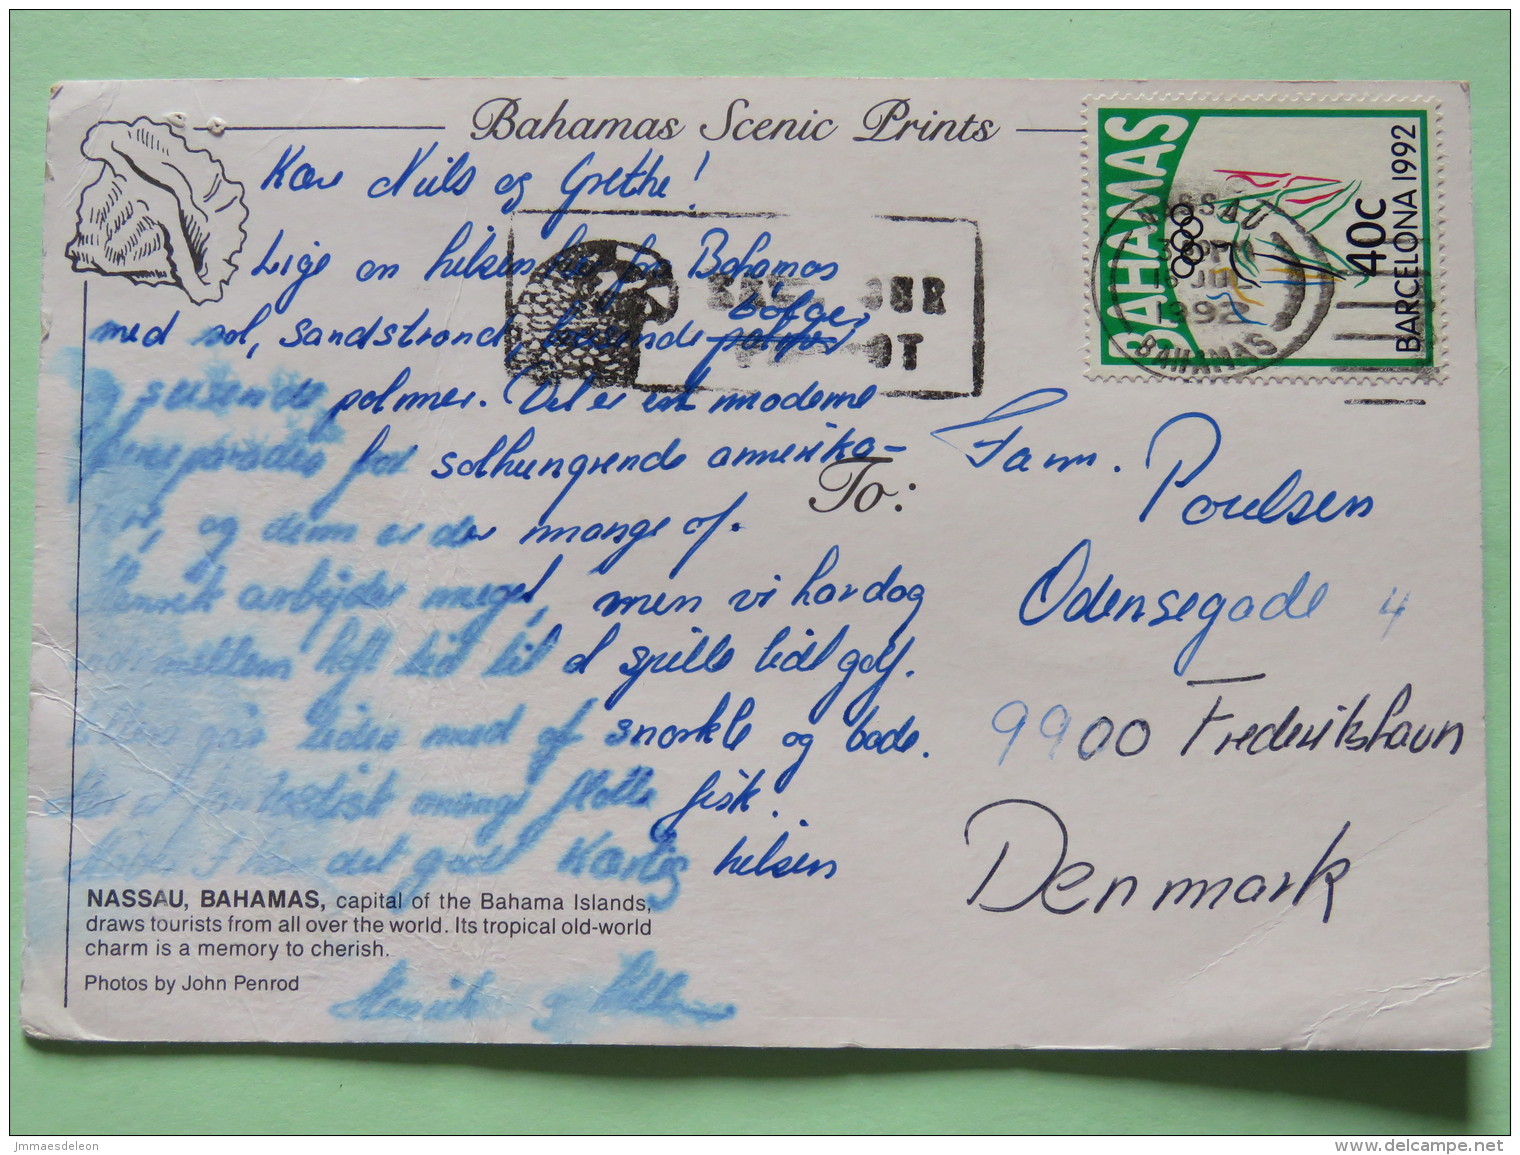 Bahamas Scenic Prints
Kære Niels og Grethe!
Lige en hilsen her fra Bahamas
med sol, sandstrand, brusende palmer bølger
og susende palmer. Det er det moderne
for solhungrende amerika-
nere, og dem er der mange af.
Henrik arbejder meget, men vi har dog
haft tid til at spille lidt golf.
tiden med at snorkle og bade.
fantastisk mange flotte fisk.
det godt Kærlig hilsen
Henrik og
NASSAU, BAHAMAS, capital of the Bahama Islands,
draws tourists from all over the world. Its tropical old-world
charm is a memory to cherish.
Photos by John Penrod
To:
Fam. Poulsen
Odensegade 4
9900 Frederikshavn
Denmark
SAVE OUR
PARROT
BAHAMAS
40C
BARCELONA 1992
NASSAU
PM
JUL
1992
BAHAMAS
jmmaesdeleon
www.delcampe.net